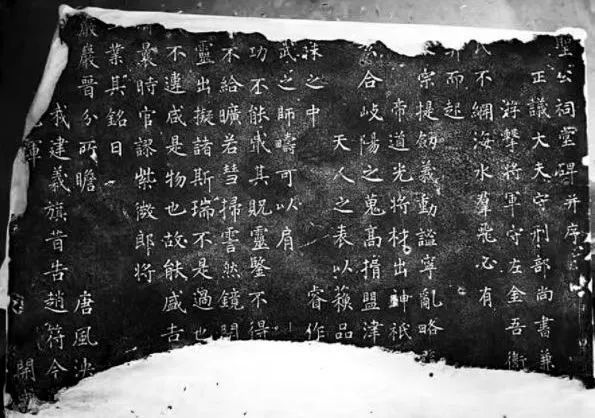 聖公祠堂碑并序
正議大夫守刑部尚書兼
游擊將軍守左金吾衛
氏不綱海水群飛必有
而起
宗提劍義動謐寧亂略
帝道光將材出神祇
合岐陽之蒐高揖盟津
天人之表以蘋品
之中
武之師疇可以肩 睿作
功不能戢其貺靈鑒不得
不給曠若彗掃雲然鏡開
靈出擬諸斯瑞不是過也
不違感是物也故能感吉
最時官認紫微郎將
業其銘曰
巖巖晉分所瞻 唐風泱
我建義旗昔告趙符今
開